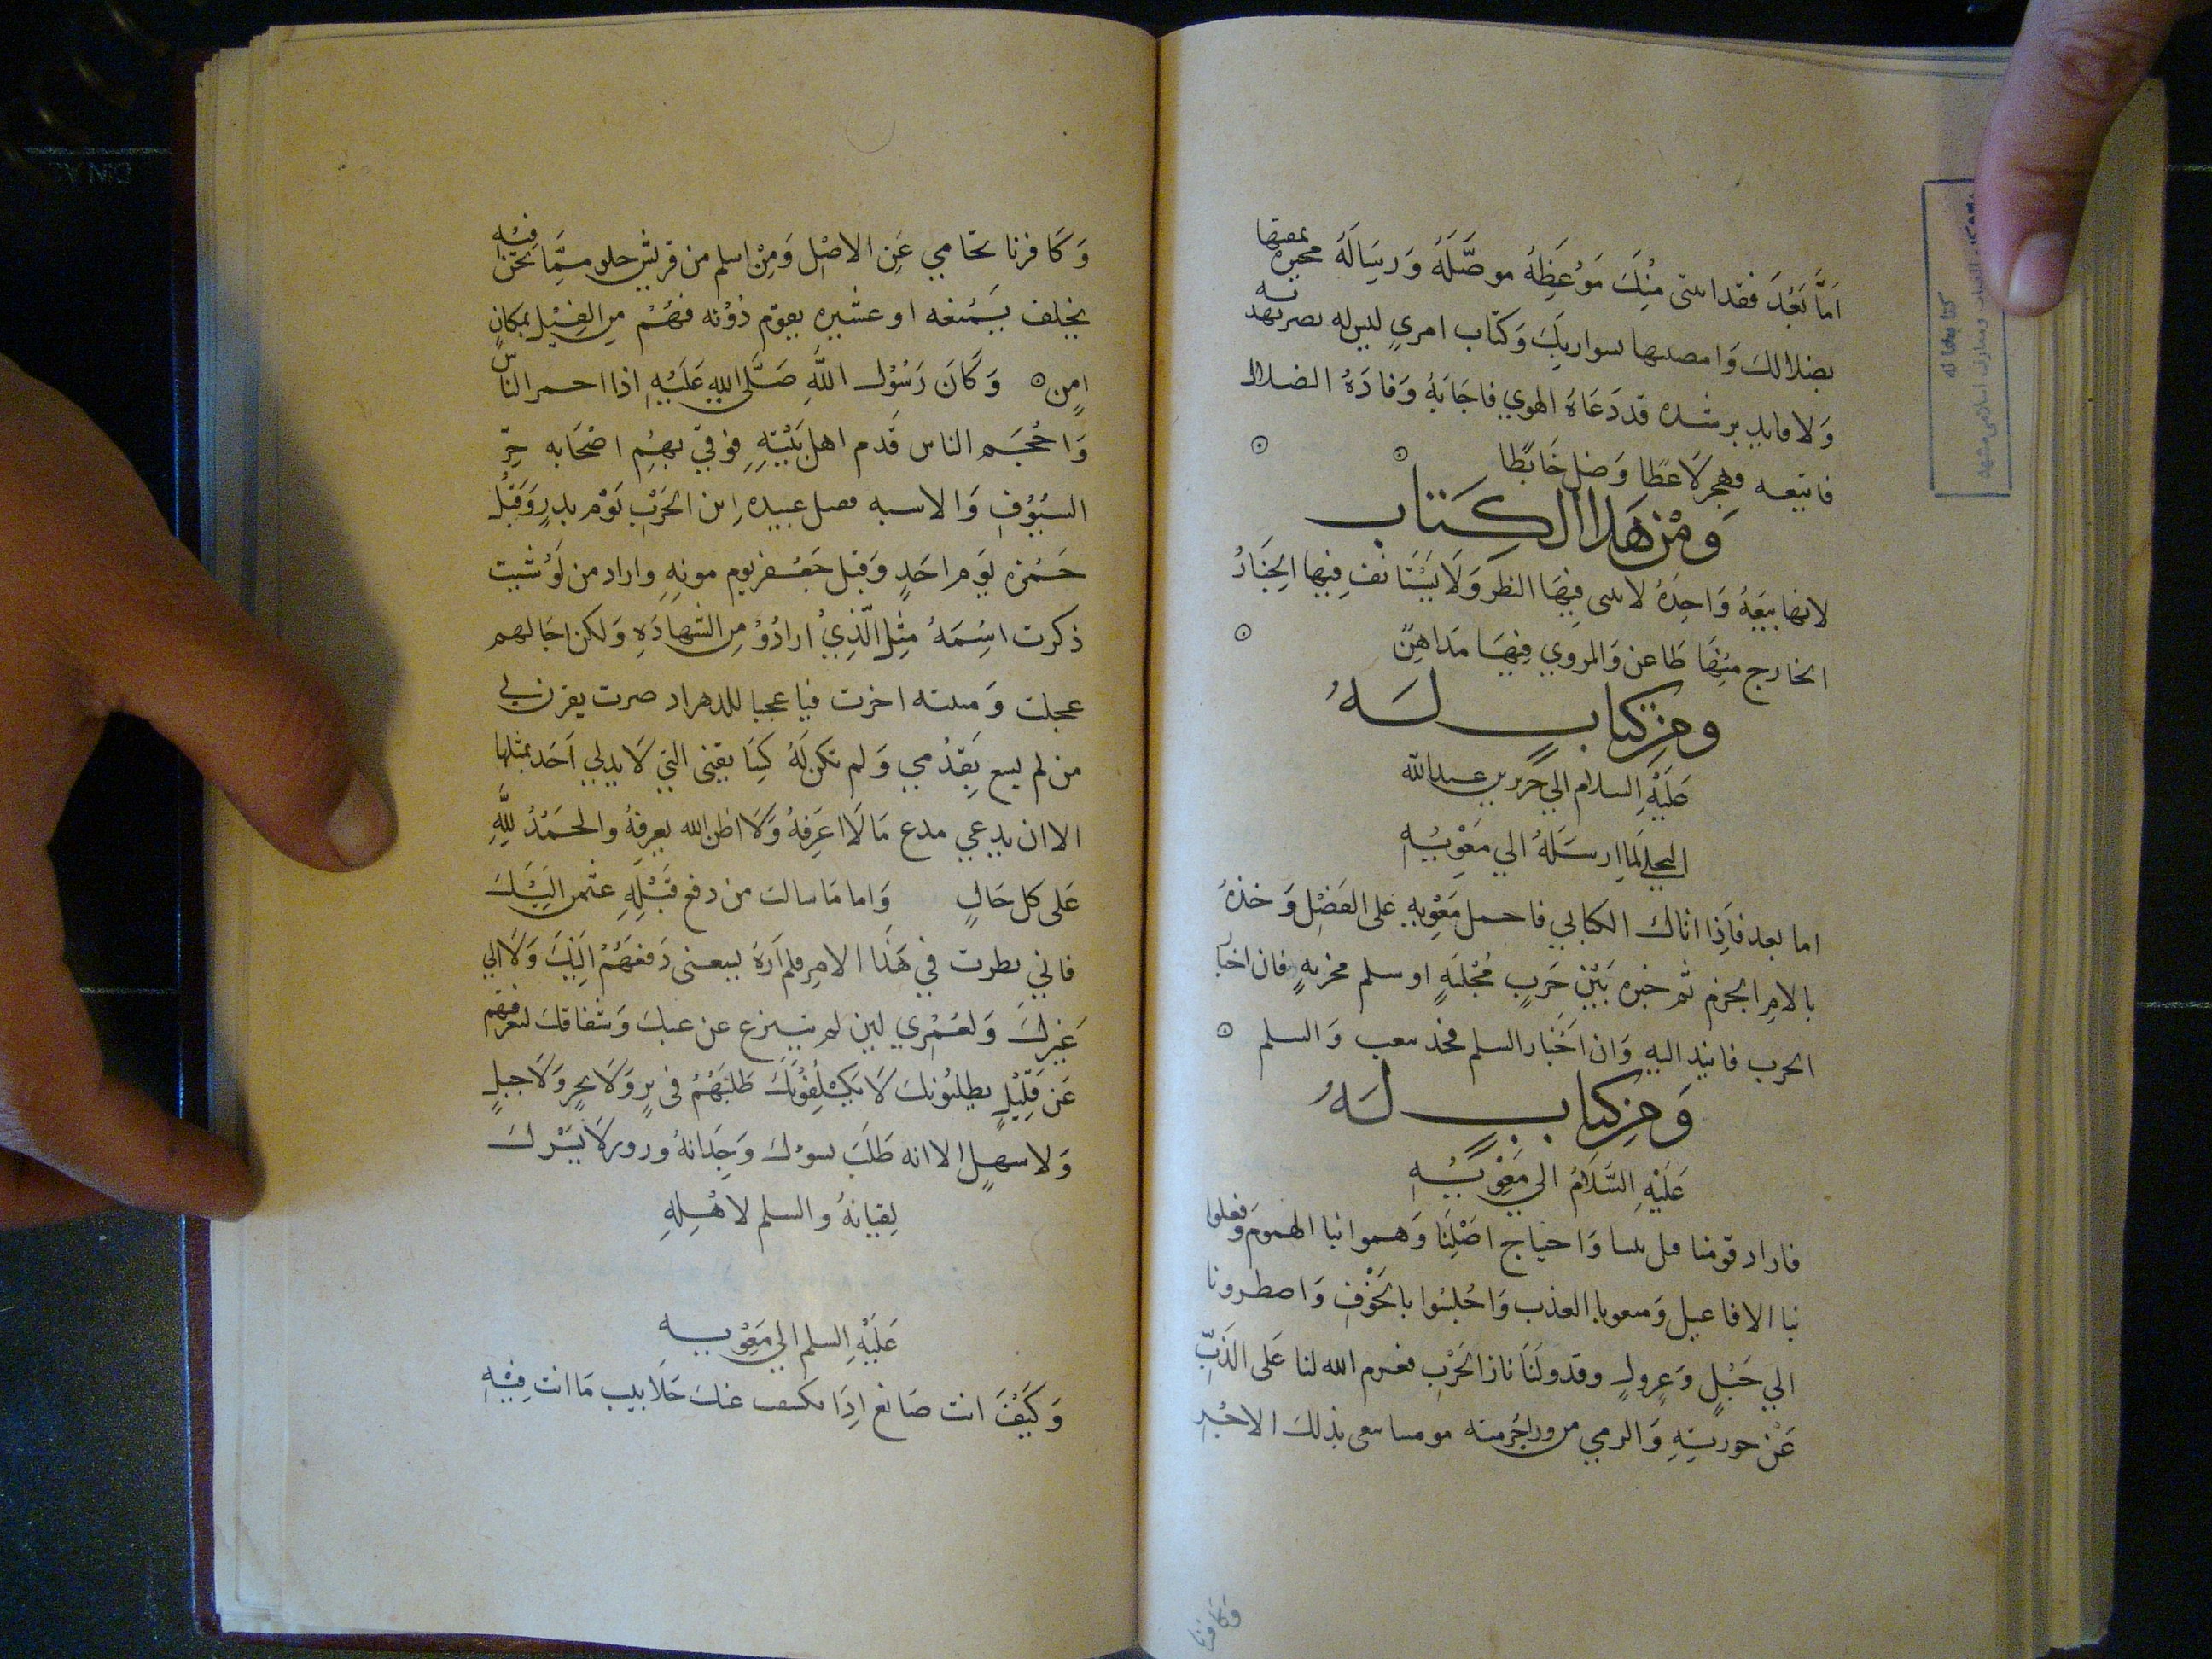 اَمَّا بَعْدَ فقد اتتنى مِنْكَ مَوْعِظَةُ موصَّلَةُ وَرِسَالَةُ محبرة نمقتها
بضلالك وَامضيتها بسوارَيِكَ وَكتاب امرىٍ ليس له بصر يهديه
وَلا قايد يرشده قد دَعَاهُ الهوي فاجَابَهُ وَقادَهُ الضلال
فاتبعه فهجر لَاغطا وَضل خَابطًا
وَمْن هَذا الكِتاب
لانها بيَعَةُ وَاحِدَةُ لا يثنى فِيهَا النظر وَلَا يَسْتَانف فِيها الخِيَارُ
الخارج مِنهَا طَاعن وَالمروي فِيهَا مَدَاهِنٌ
ومن كتابٍ لَهُ
عَلَيْهِ السلام الي جرير بن عبد الله
البجلي لما ارسَلهُ الي مَعْوِيهِ
اما بعد فَاِذا اتاك الكتابي فاحمل مَعْوِيه عَلى الفَصْل وَخذهُ
بالامِر الجزم ثم خيره بَيْنَ حَربٍ مُجْليَةٍ او سلم مخزيهٍ فان اختار
الحرب فانبذ اليه وَان اَختار السلم فخذ بيعته وَالسلم
وَمِن كتابٍ لَهُ
عَلَيْهِ السَّلَامُ الي مَعْوِيَهِ
فاراد قومنا قتل نبينا وَاجتياح اصْلِنَا وَهموا بنا الهموم وَفعلوا
بنا الافاعيل وَمنعونا العذب وَاحْلسُوا بالخَوْفِ وَاضطرونا
الي جَبلٍ وَعِرٍ وقدو لَنَا نار الحَرْبِ فعزم الله لنا عَلى الذَبِّ
عَنْ حورتِهِ وَالرمي من وراحُرمته مومننا يبغى بذلكَ الاجْر
وكافرنا
وَكَافرنا يحَامي عَنِ الاصْل وَمِنْ اسلم من قريش خلو مِمَّا نحْنُ فِيْه
بخلف يَمْنعه او عشيره يقوم دُوْنه فهُمْ مِن القَتْل بمكانِ
امنٍ وَكَانَ رَسُوْل اللهِ صَلَّى اللهِ عَلَيْهِ اذا احمر الناس
وَاحْجَم الناس قَدم اهل بَيْتِهِ فوقيَ بِهِم اصْحَابه حَرّ
السُيُوْفِ وَالاسنه فقتل عبيده بن الحَرْبِ يَوْم بدرٍ وَقتلُ
حَمْزه يَوم احَدٍ وَقتل جَعْفر يوم موتهِ واراد من لَوْ شيت
ذكرت اسْمَهُ مثِل الَّذِيْ ارادُوْ من الشهادَهِ وَلكن اجالهم
عجلت وَمنيته اخرت فيا عجبا للدهر اد صرت يقرن بي
من لم يسع بِقدْمي وَلم تكن لَهُ كسابقتي التي لَا يدلي اَحَد بمثلها
الا ان يدعي مدع مَا لَا اعَرِفهُ وَلَا اظن الله يعرِفهُ والحَمْدُ للهِ
عَلى كل حَالٍ وَاما مَا سالت من دفع قَتَلِهِ عثمن اليَكَ
فاني نظرت في هَذَا الامِر فلم اَرَهُ يسعنى دَفعَهُمْ اليْكَ وَلَا الي
غَيْرِكَ وَلعُمْرِي لين لم تنزع عن غيك وَشقاقك لتعرفنهم
عَنْ قَلِيْلٍ يطلبُونك لَا يُكَلِفُوْنَكَ طَلَبَهُمْ فى بَرٍ وَلَا بحرٍ وَلَا جبلٍ
وَلا سهلٍ الا انه طَلَبَ يسوْك وَجِدَانهُ وزور لَا يَسُرك
لِقيانهُ والسلم لاهْلِهِ
عَلَيْهِ السلم الي مَعْويه
وَكَيْفَ انت صَانع ادَا تكشفت عنك جَلَابيب مَا انت فِيْهِ